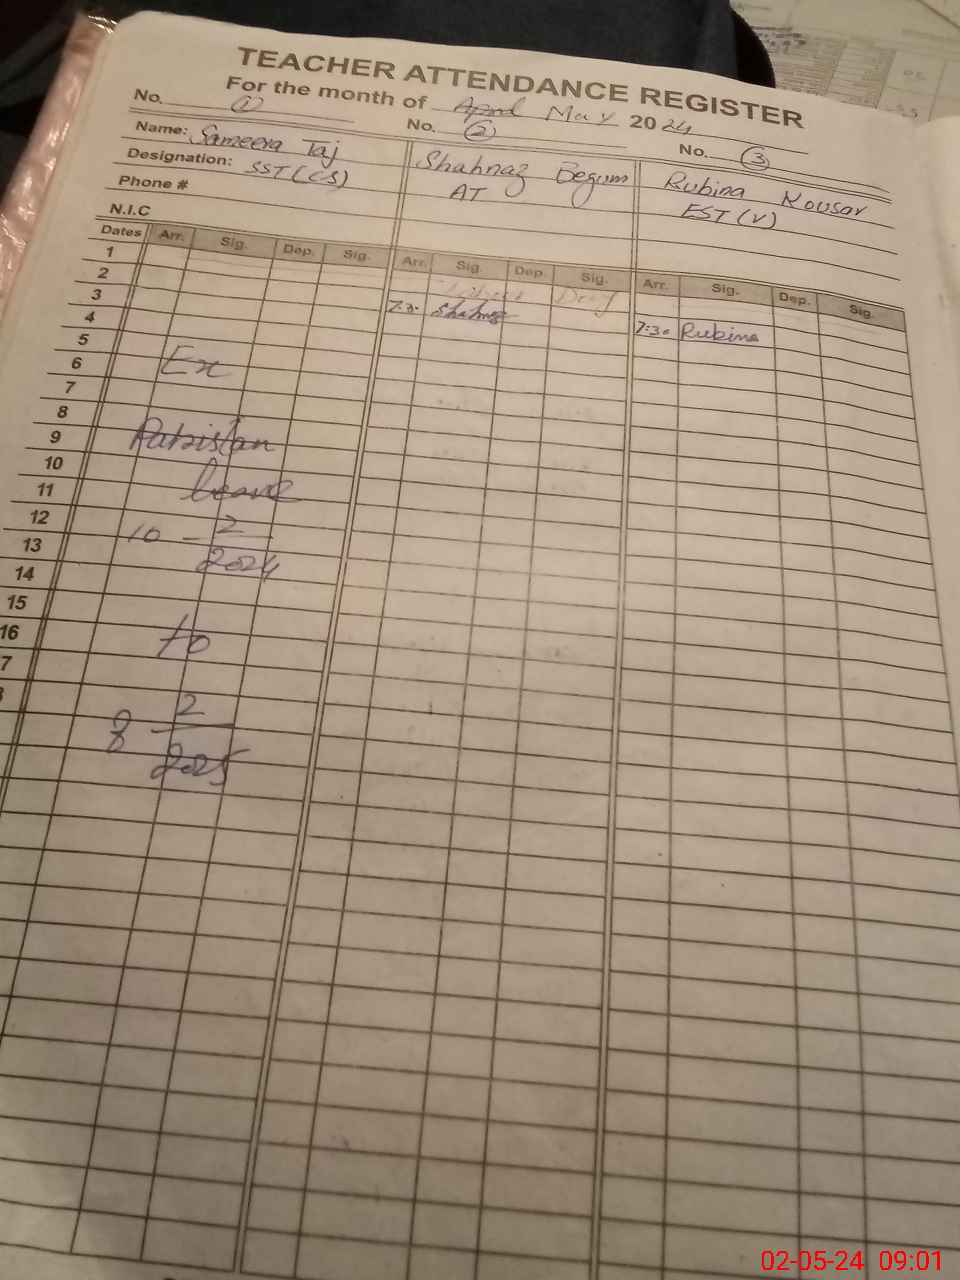 TEACHER ATTENDANCE REGISTER
For the month of April May 2024
No. 1 No. 2 No. 3
Name: Sameera Taj Shahnaz Begum Rubina Kousar
Designation: SST (CS) AT EST (V)
Phone #
N.I.C
Dates Arr. Sig. Dep. Sig. Arr. Sig. Dep. Sig. Arr. Sig. Dep. Sig.
1
2 7:3. Shahnaz 7:30 Rubina
3
4
5
6 Ex
7
8
9 Pakistan
10
11 leave
12
13 10 - 2
14 2024
15
16 to
7
8
8 2
2025
02-05-24 09:01